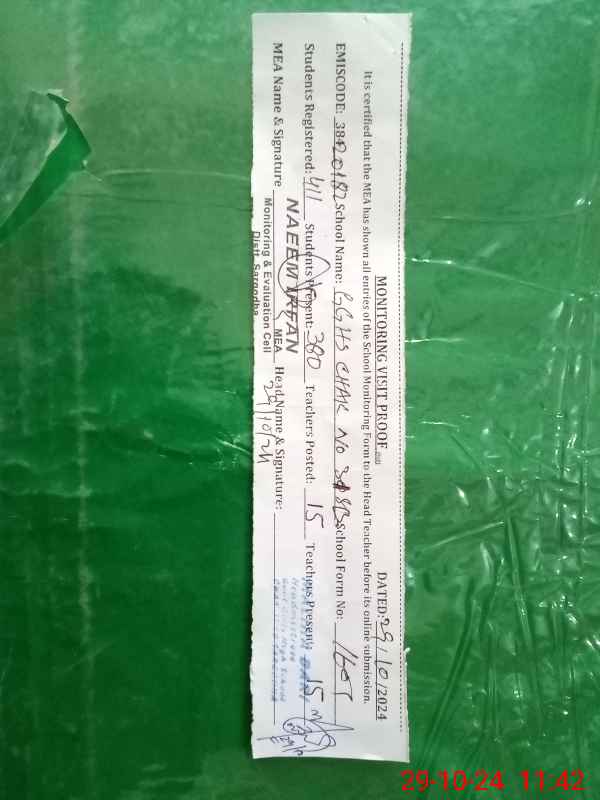 MONITORING VISIT PROOF
DATED: 29/10/2024
It is certified that the MEA has shown all entries of the School Monitoring Form to the Head Teacher before its online submission.
EMISCODE: 38420182 School Name: GGHS CHAK NO SB School Form No:
Students Registered: 411 Students Present: 380 Teachers Posted: 15 Teachers Present: 15
MEA Name & Signature Head Name & Signature:
NAEEM IRFAN
MEA
Monitoring & Evaluation Cell
Distt. Sargodha
29/10/24
Headmistress
29-10-24 11:42